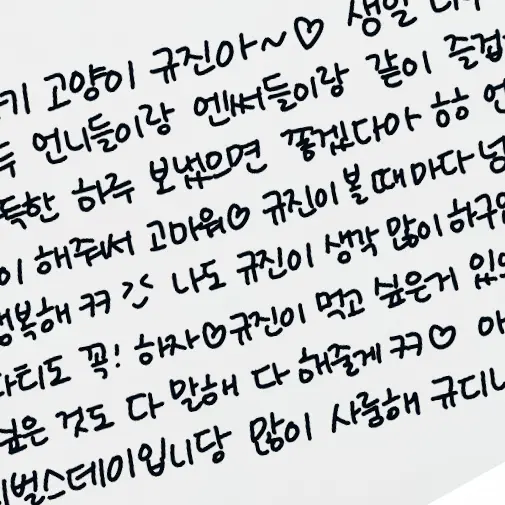 키 고양이 규진아~♡ 생일
언니들이랑 엔써들이랑 같이 즐겁
득한 하루 보냈으면 좋겠다아 ㅎㅎ 언
이 해줘서 고마워♡ 규진이 볼 때마다 넘
행복해 ㅋㅋ 나도 규진이 생각 많이 하구
파티도 꼭! 하자♡규진이 먹고 싶은거 있
싶은 것도 다 말해 다 해줄게 ㅋㅋ♡ 아
벌스데이입니당 많이 사룽해 규디니